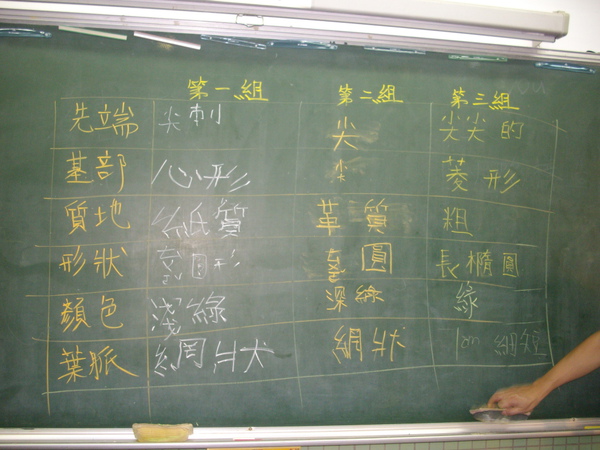 第一組 第二組 第三組
先端 尖刺 尖 尖尖的
基部 心形 尖 菱形
質地 紙質 革質 粗
形狀 圓形 圓 長橢圓
顏色 淺綠 深綠 綠
葉脈 網狀 網狀 細短